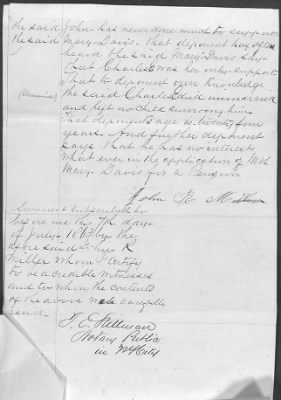 the said John has never done much to support
the said Mary Davis. That deponent has often
heard the said Mary Davis say
that Charles was her only support
that to deponent own knowledge
the said Charles died unmarried
and left no child surviving him
That deponents age is twenty four
years. And further deponent
says that he has no interest
what ever in the application of Mrs
Mary Davis for a Pension
John R Miller
Sworn and subscribed to
before me this 7th day
of July 1863 by the
aforesaid John R
Miller whom I certify
to be a credible witness
and to whom the contents
of the above were carefully
read.
Notary Public
in